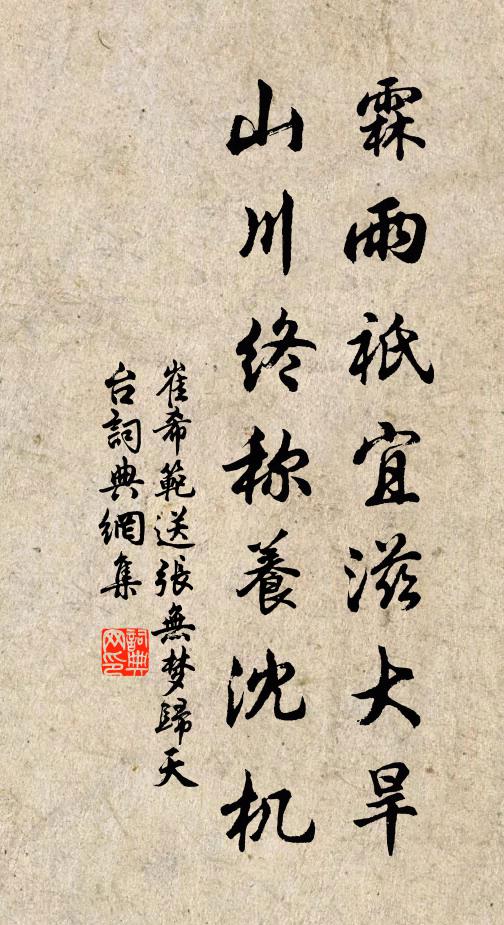 霖雨祇宜滋大旱
山川终称養沈机
崔希範送張無梦歸天
台詞典網集
詞典网印